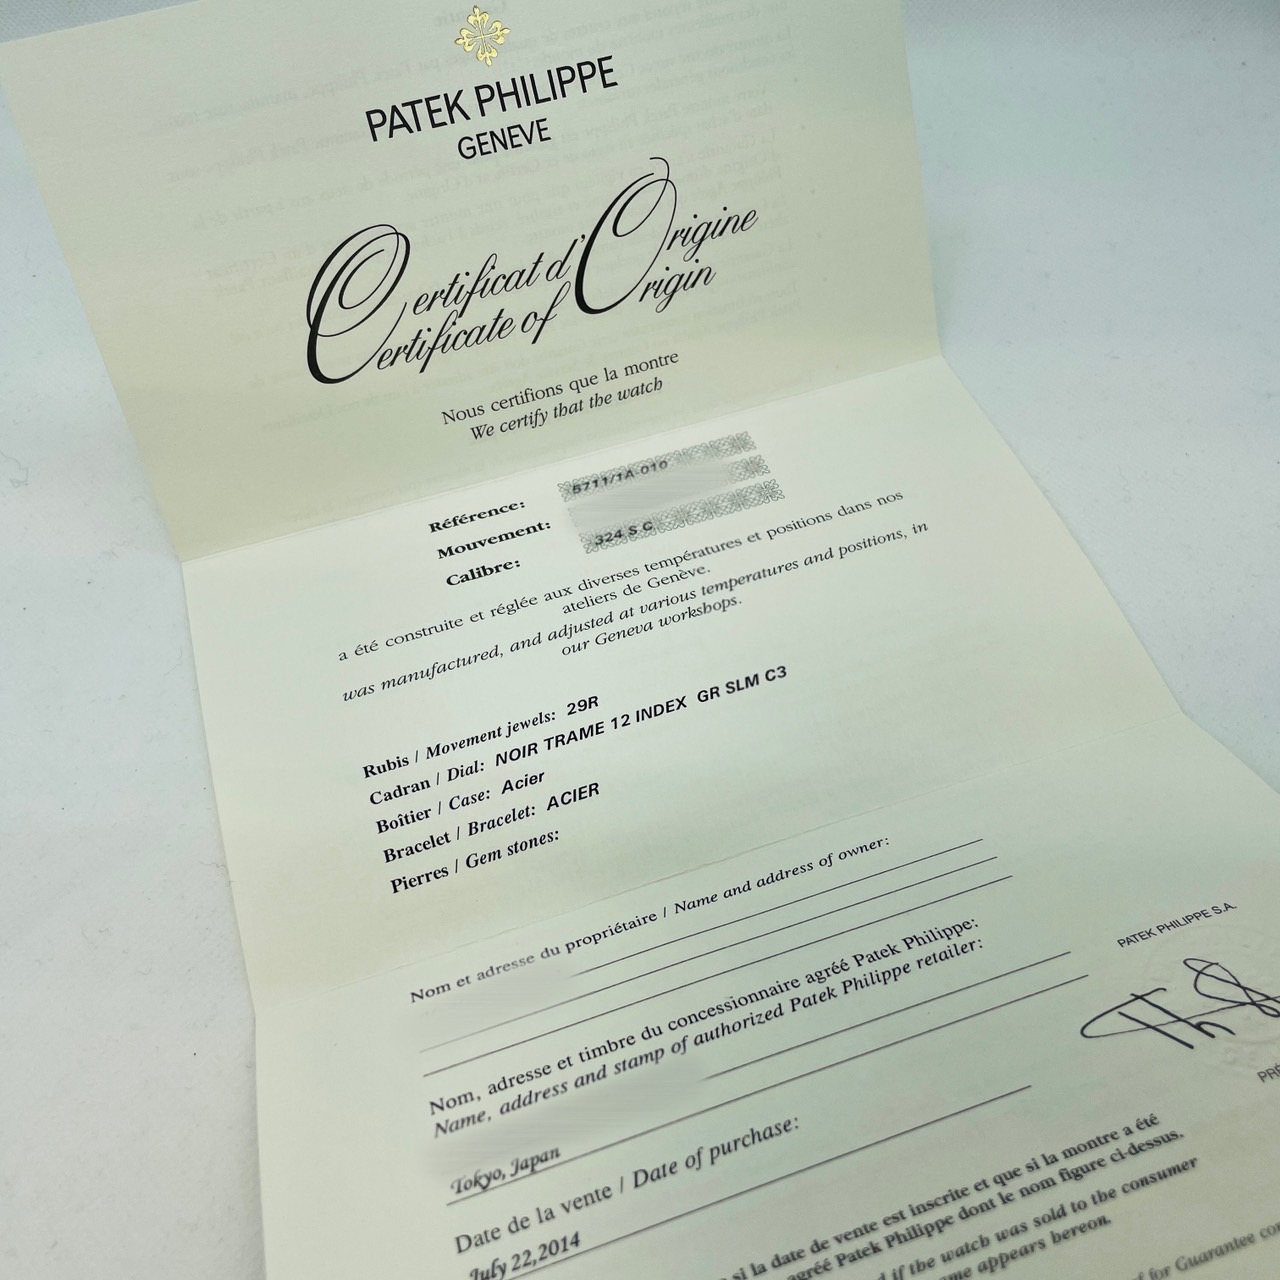 PATEK PHILIPPE
GENEVE
Certificat d'Origine
Certificate of Origin
Nous certifions que la montre
We certify that the watch
Référence: 5711/1A-010
Mouvement:
Calibre: 324 S C
a été construite et réglée aux diverses températures et positions dans nos
ateliers de Genève.
was manufactured, and adjusted at various temperatures and positions, in
our Geneva workshops.
Rubis / Movement jewels: 29R
Cadran / Dial: NOIR TRAME 12 INDEX GR SLM C3
Boîtier / Case: Acier
Bracelet / Bracelet: ACIER
Pierres / Gem stones:
Nom et adresse du propriétaire / Name and address of owner:
Nom, adresse et timbre du concessionnaire agréé Patek Philippe:
Name, address and stamp of authorized Patek Philippe retailer:
Tokyo, Japan
PATEK PHILIPPE S.A.
Date de la vente / Date of purchase:
July 22,2014
si la date de vente est inscrite et que si la montre a été
agréé Patek Philippe dont le nom figure ci-dessus.
if the watch was sold to the consumer
appears hereon.
for Guarantee